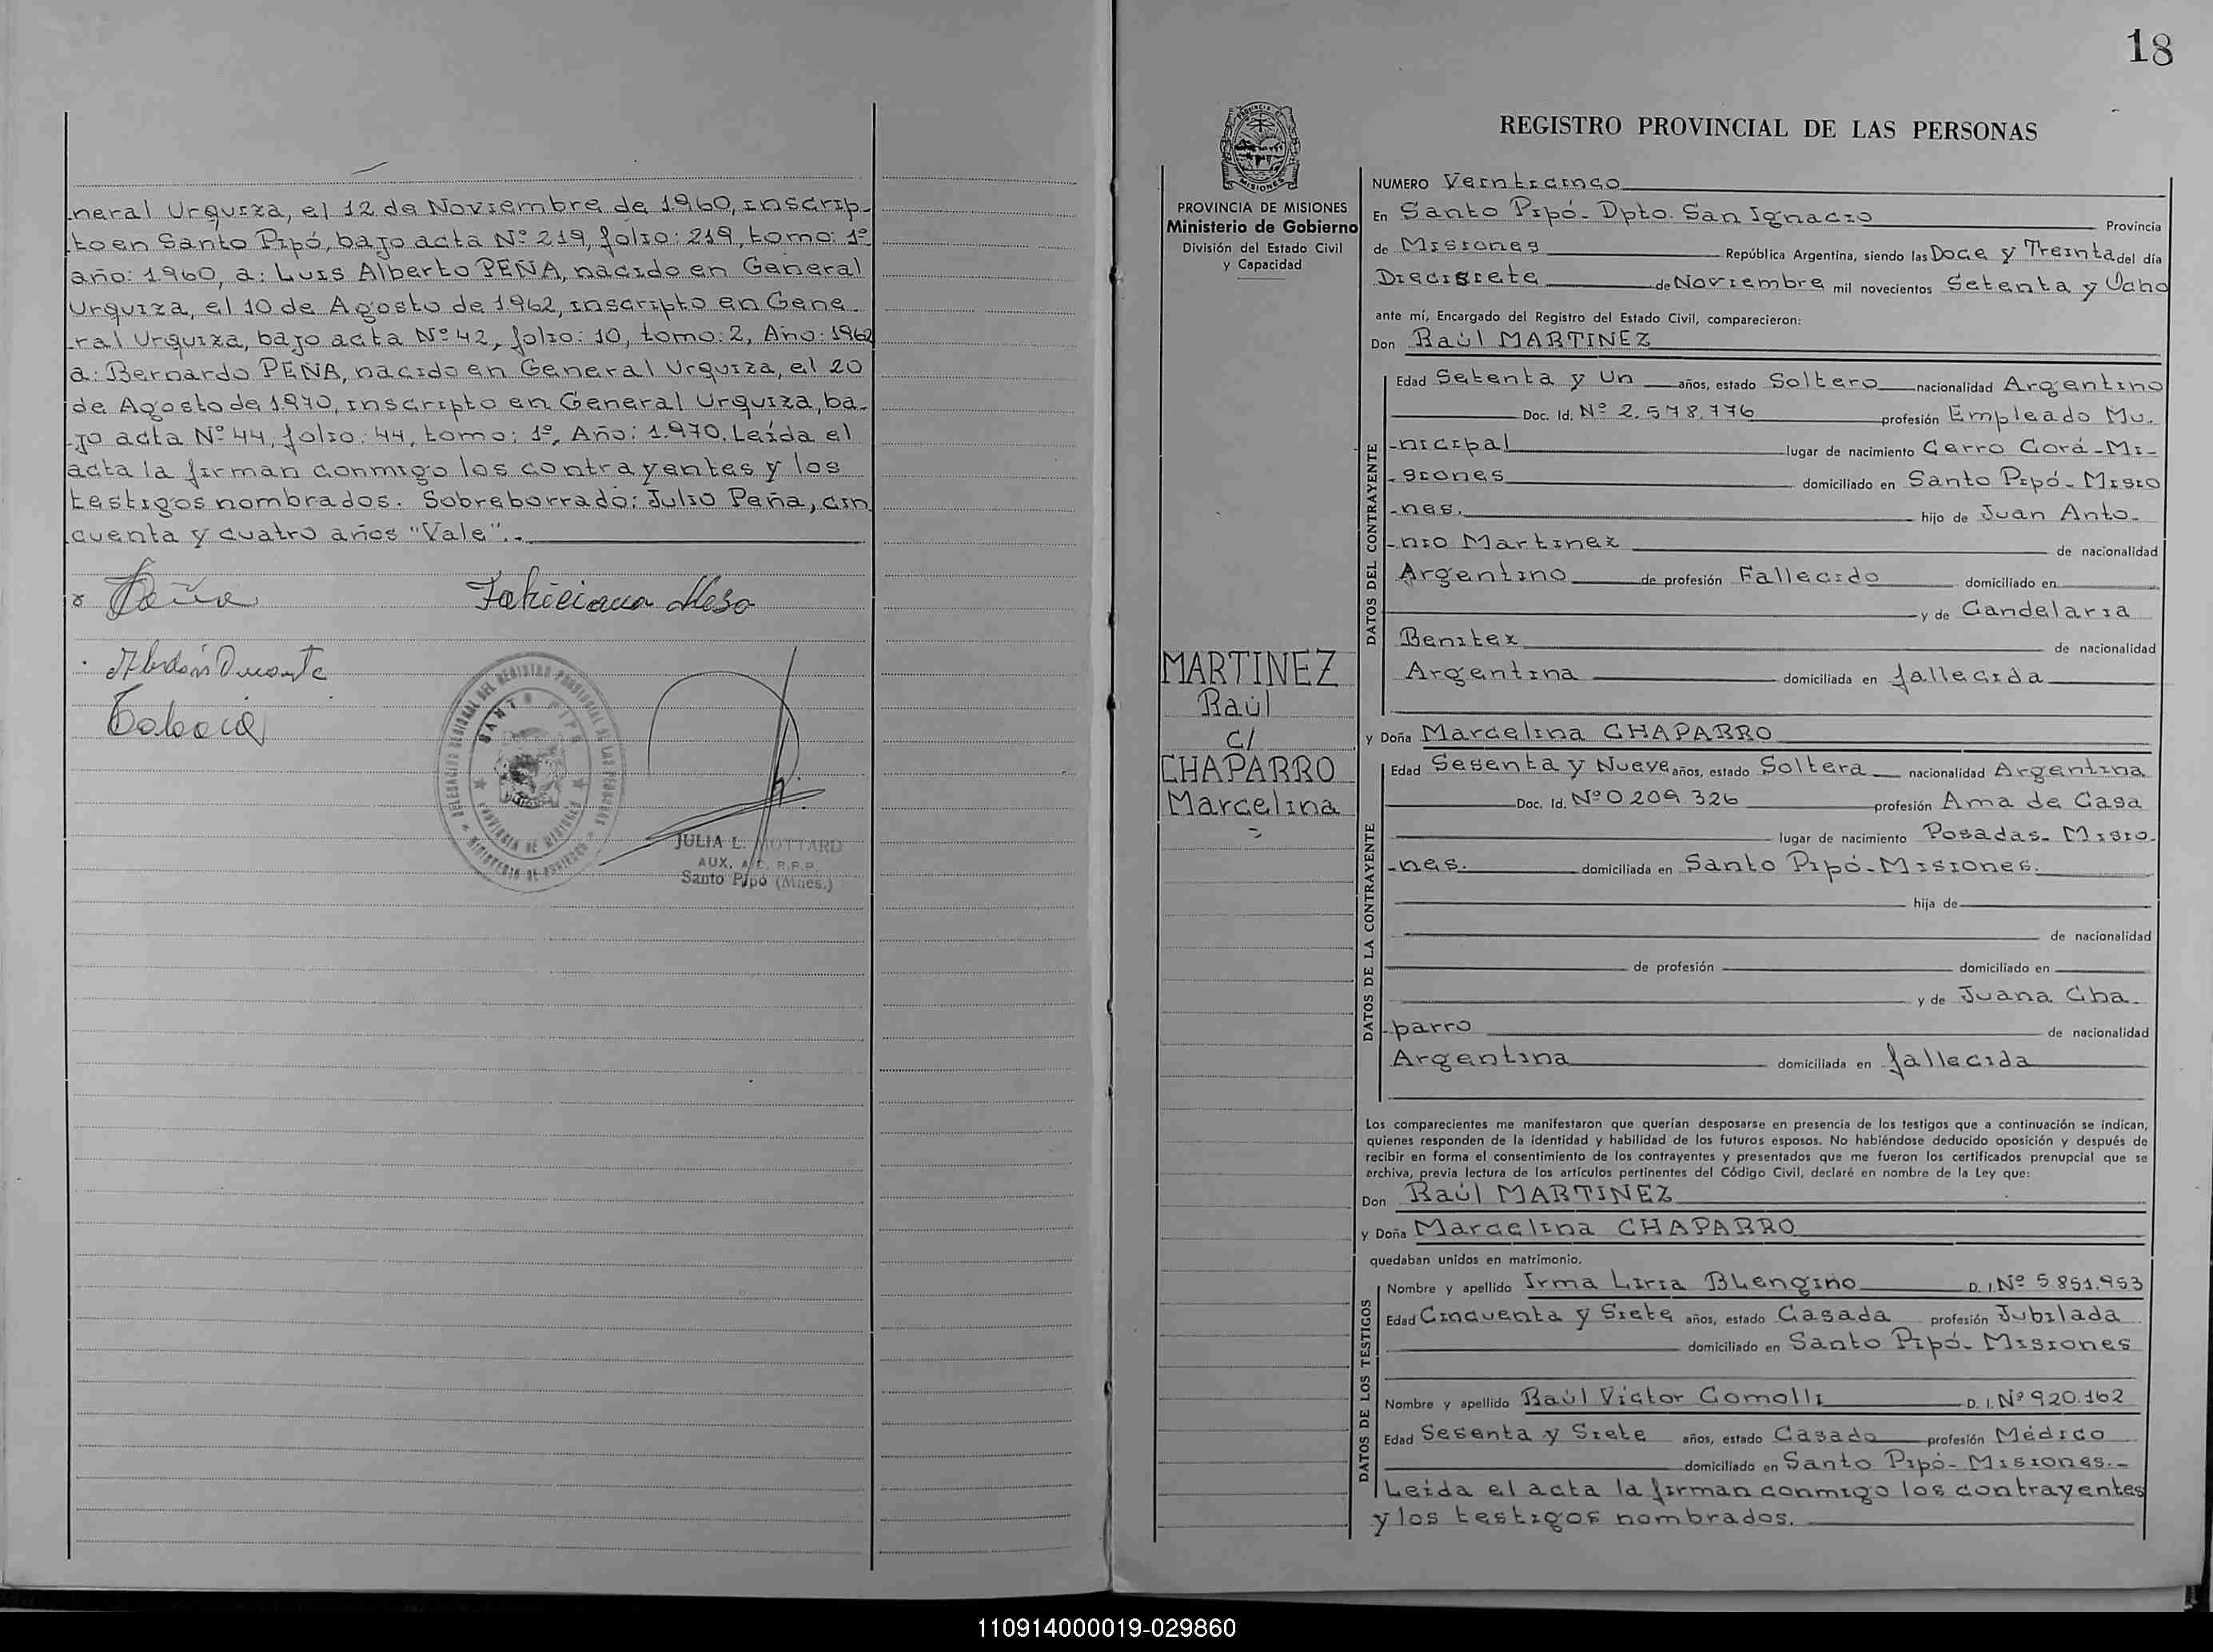 neral Urquiza, el 12 de Noviembre de 1960, inscrip-
to en Santo Pipó, bajo acta Nº 219, folio: 219, tomo: 1º
año: 1960, a: Luis Alberto PEÑA, nacido en General
Urquiza, el 10 de Agosto de 1962, inscripto en Gene
-ral Urquiza, bajo acta Nº 42, folio: 10, tomo: 2, Año: 1962
a: Bernardo PEÑA, nacido en General Urquiza, el 20
de Agosto de 1.970, inscripto en General Urquiza, ba-
-jo acta Nº 44, folio: 44, tomo: 1º, Año: 1.970. Leída el
acta la firman conmigo los contrayentes y los
testigos nombrados. Sobreborrado: Julio Peña, cin
cuenta y cuatro años "Vale".-
Peña
JULIA L. MOTTARD
AUX. R.P.P.
Santo Pipó (Mnes.)
18
REGISTRO PROVINCIAL DE LAS PERSONAS
PROVINCIA DE MISIONES
Ministerio de Gobierno
División del Estado Civil
y Capacidad
MARTINEZ
Raúl
c/
CHAPARRO
Marcelina
NUMERO Veinticinco
En Santo Pipó- Dpto. San Ignacio Provincia
de Misiones República Argentina, siendo las Doce y Treinta del día
Diecisiete de Noviembre mil novecientos Setenta y Ocho
ante mí, Encargado del Registro del Estado Civil, comparecieron:
Don Raúl MARTINEZ
DATOS DEL CONTRAYENTE
Edad Setenta y Un años, estado Soltero nacionalidad Argentino
Doc. Id. Nº 2.578.776 profesión Empleado Mu-
-nicipal lugar de nacimiento Cerro Corá-Mi-
-siones domiciliado en Santo Pipó- Misio
-nes. hijo de Juan Anto-
-nio Martinez de nacionalidad
Argentino de profesión Fallecido domiciliado en
y de Candelaria
Benitez de nacionalidad
Argentina domiciliada en fallecida
y Doña Marcelina CHAPARRO
DATOS DE LA CONTRAYENTE
Edad Sesenta y Nueve años, estado Soltera nacionalidad Argentina
Doc. Id. Nº 0 209 326 profesión Ama de Casa
lugar de nacimiento Posadas- Misio-
-nes. domiciliada en Santo Pipó- Misiones.
hija de
de nacionalidad
de profesión domiciliado en
y de Juana Cha-
-parro de nacionalidad
Argentina domiciliada en fallecida
Los comparecientes me manifestaron que querían desposarse en presencia de los testigos que a continuación se indican,
quienes responden de la identidad y habilidad de los futuros esposos. No habiéndose deducido oposición y después de
recibir en forma el consentimiento de los contrayentes y presentados que me fueron los certificados prenupcial que se
archiva, previa lectura de los artículos pertinentes del Código Civil, declaré en nombre de la Ley que:
Don Raúl MARTINEZ
y Doña Marcelina CHAPARRO
quedaban unidos en matrimonio.
DATOS DE LOS TESTIGOS
Nombre y apellido Irma Liria BLengino D. I. Nº 5.851.953
Edad Cincuenta y Siete años, estado Casada profesión Jubilada
domiciliado en Santo Pipó- Misiones
Nombre y apellido Raúl Victor Comolli D. I. Nº 920.162
Edad Sesenta y Siete años, estado Casado profesión Médico
domiciliado en Santo Pipó- Misiones.-
Leída el acta la firman conmigo los contrayentes
y los testigos nombrados.
110914000019-029860